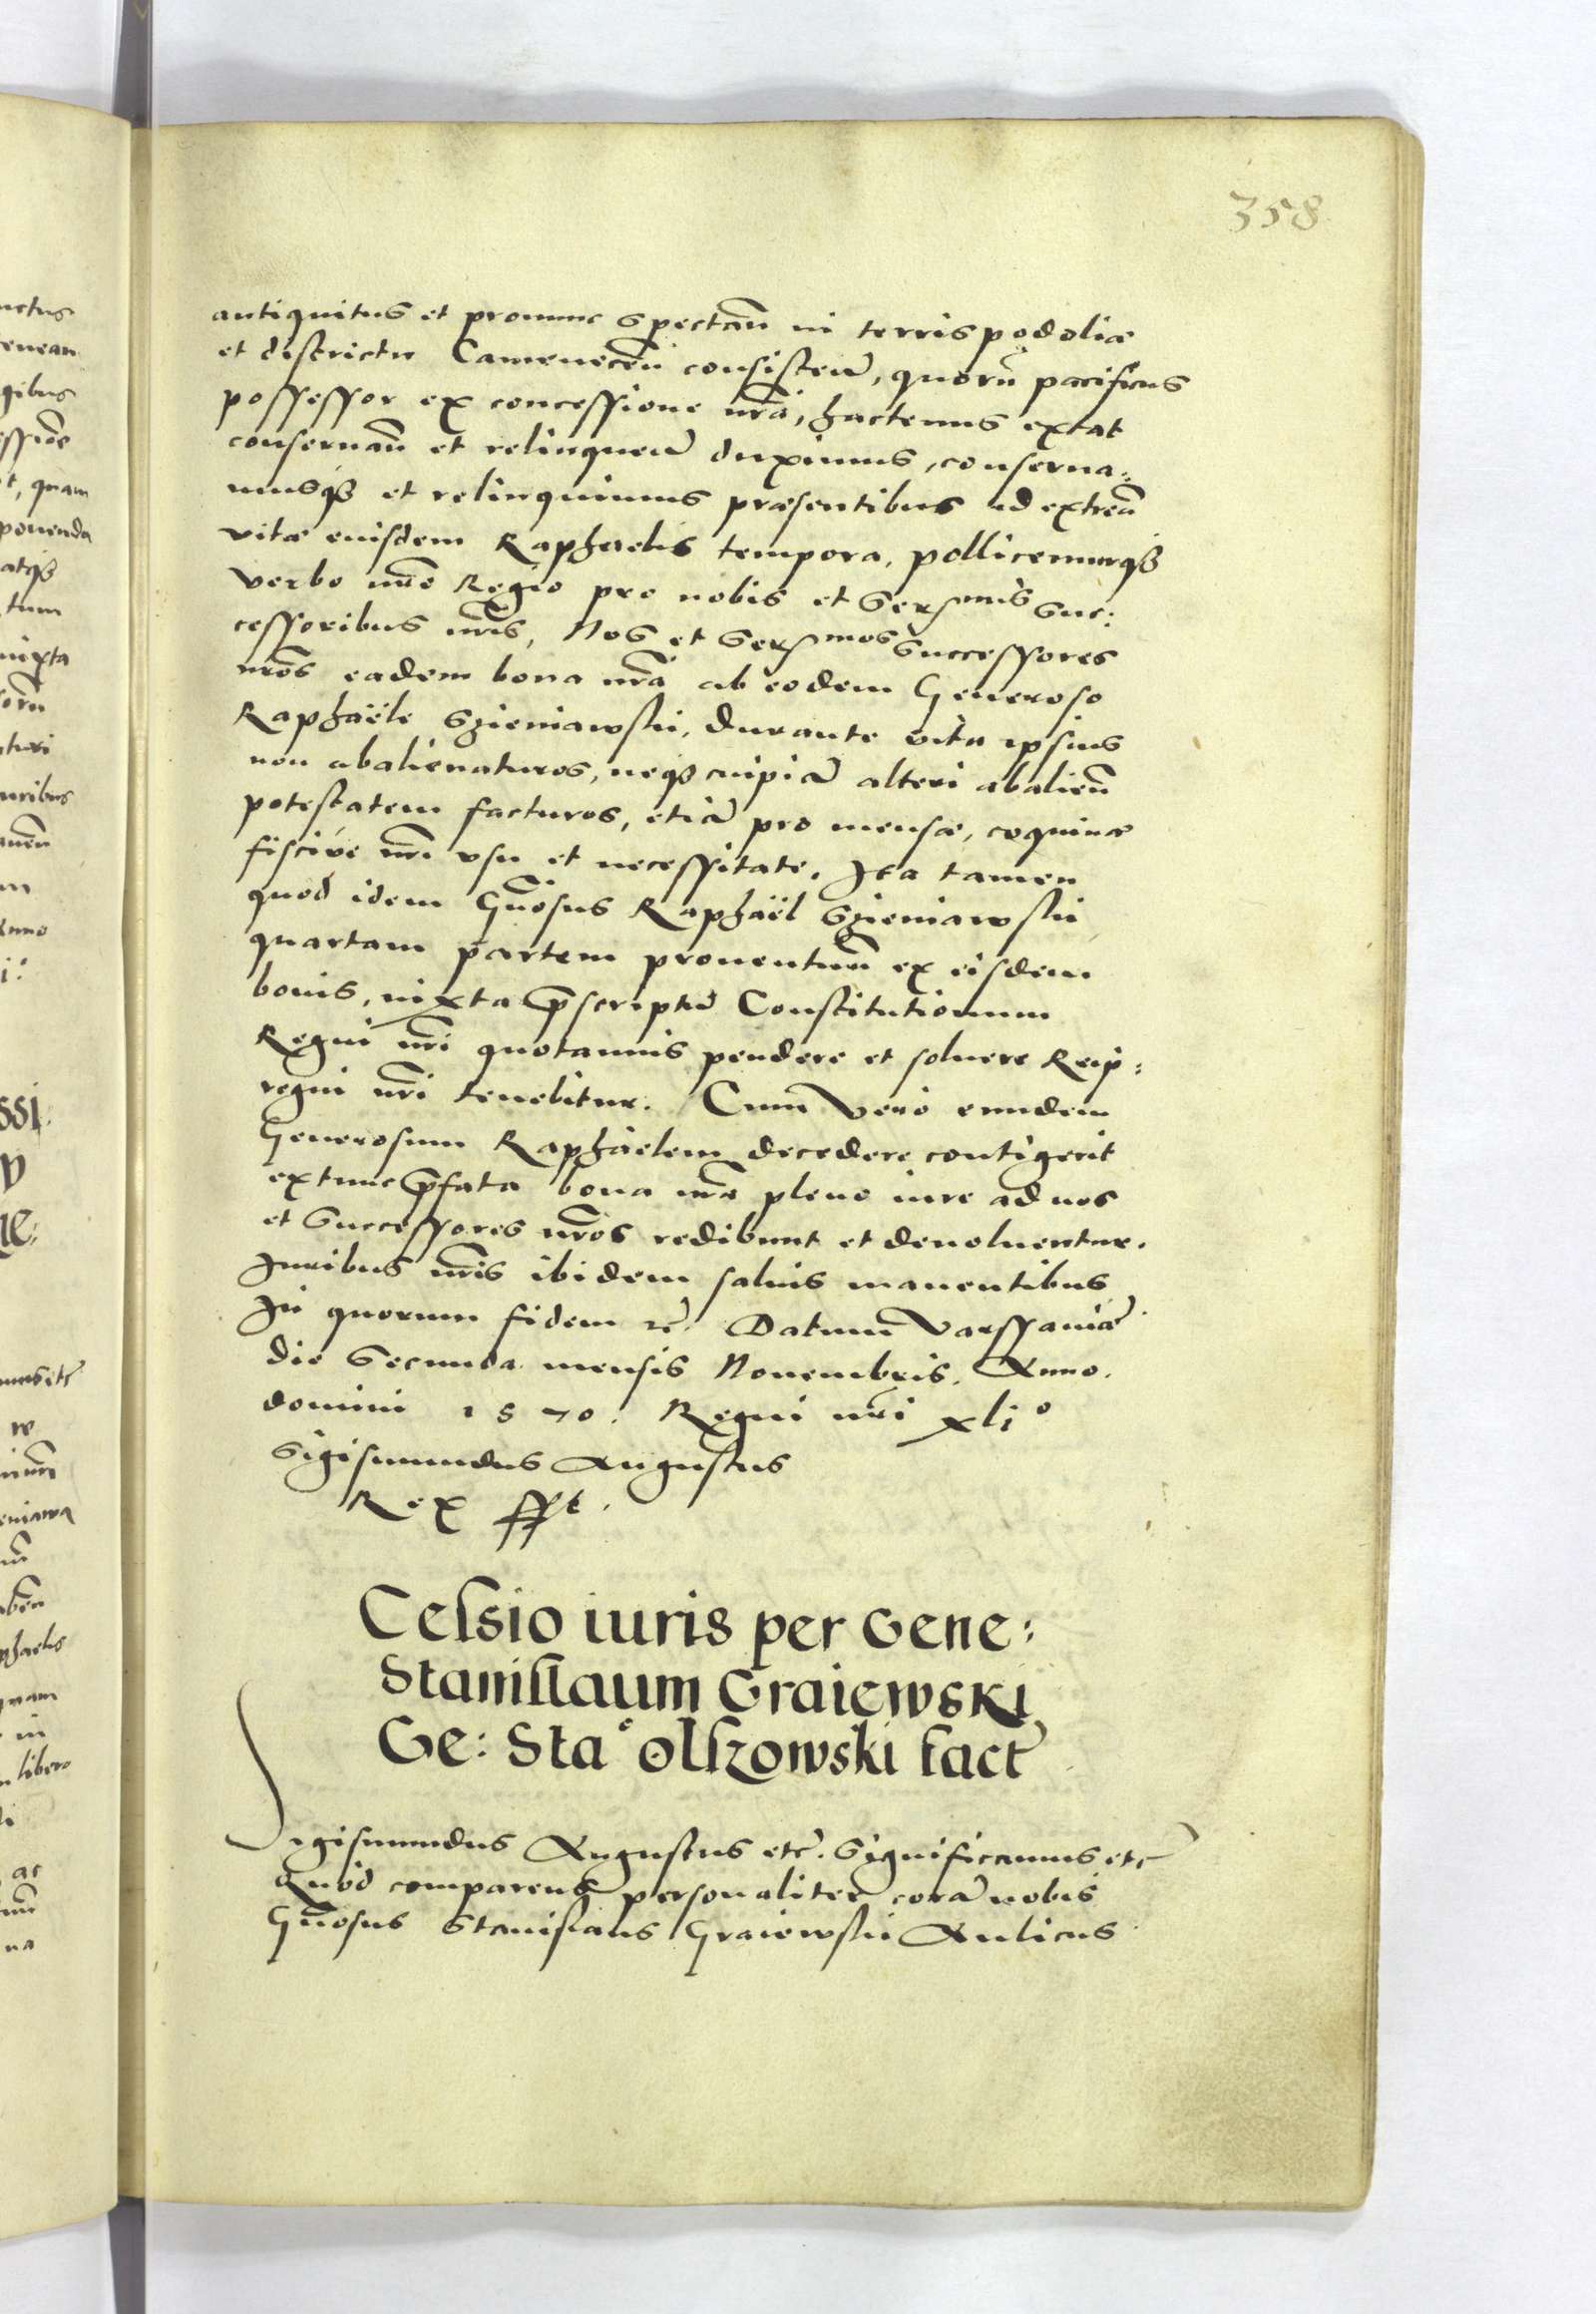 358
antiquitus et pronunc spectan̄ in terris podoliæ
et districtu Camenecen̄ consisten̄, quorū pacificus
possessor ex concessione nrā, hactenus extat
conseruan̄ et relinquen̄ duximus, conserua:
musqȝ et relinquimus præsentibus ad extrea̅
vitæ eiusdem Raphaelis tempora, pollicemurqȝ
verbo nrō Regio pro nobis et Sersmis Suc:
cessoribus nrīs, Nos et Sersmos Successores
nrōs eadem bona nrā ab eodem Generoso
Raphaële Szieniawskii, durante vita ipsius
non abalienaturos, neqȝ cuipiā alteri abalien̄
potestatem facturos, etiā pro mensæ, coquinæ
fiscive nrī vsu et necessitate. Ita tamen
quod idem Gn̄osus Raphaël Szieniawskii
quartam partem prouentuū ex eisdem
bonis, iuxta p̄scriptū Constitutionum
Regni nrī quotannis pendere et soluere Reip:
regni nrī tenebitur. Cum Vero eundem
Generosum Raphaelem decedere contigerit
extunc p̄fata bona nrā pleno iure ad nos
et Successores nrōs redibunt et deuoluentur.
Iuribus nrīs ibidem saluis manentibus
In quorum fidem etc̄. Datum Varssauiæ
die Secunda mensis Nouembris. Anno.
domini 1570. Regni nrī xlio
Sigismundus Augustus
Rex sst.
Cessio iuris per Gene:
Stanislaum Graiewski
Ge: Stao Olszowski fact̄
Sigismundus Augustus etc̄. Significamus etc̄
Quod comparens personaliter corā nobis
Gn̄osus Stanislaus Graiewskii Aulicus